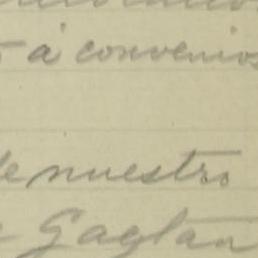 á convenios
de nuestro
Gaytán